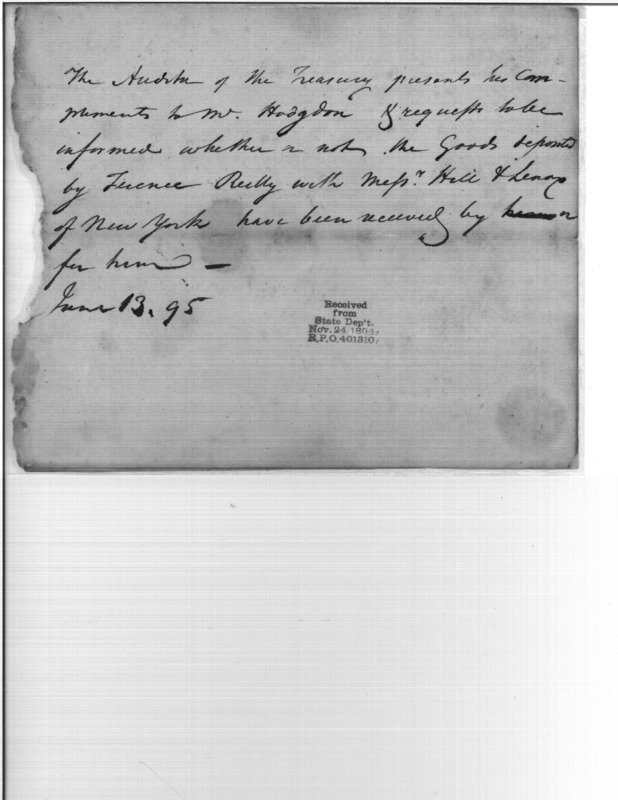 The Auditor of the Treasury presents his Com-
pliments to Mr. Hodgdon & requests to be
informed whether or not the Goods deposited
by Terence Reilly with Messrs. Hill & Lenox
of New York have been received by him or
for him —
June 13. 95
Received
from
State Dep't.
Nov. 24, 1894,
R.P.O. 401310,